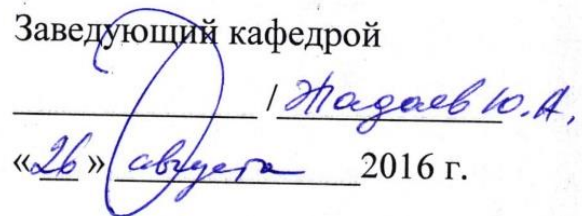 Заведующий кафедрой
/ Жадаев Ю.А.
«26» августа 2016 г.